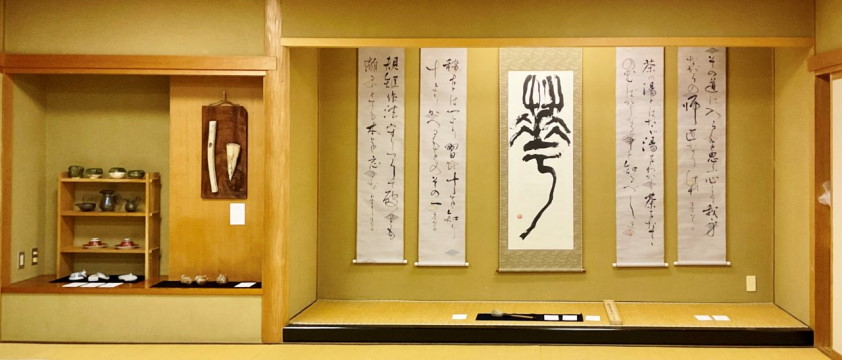 その道に入らんと思ふ心こそ我身
ながらの師匠なりけれ
茶の湯とはただ湯をわかし茶をたてて
のむばかりなる事と知べし
華
稽古とは一より習ひ十を知り
十よりかへるもとのその一
規矩作法守りつくして破るとも
離るるとても本を忘るな